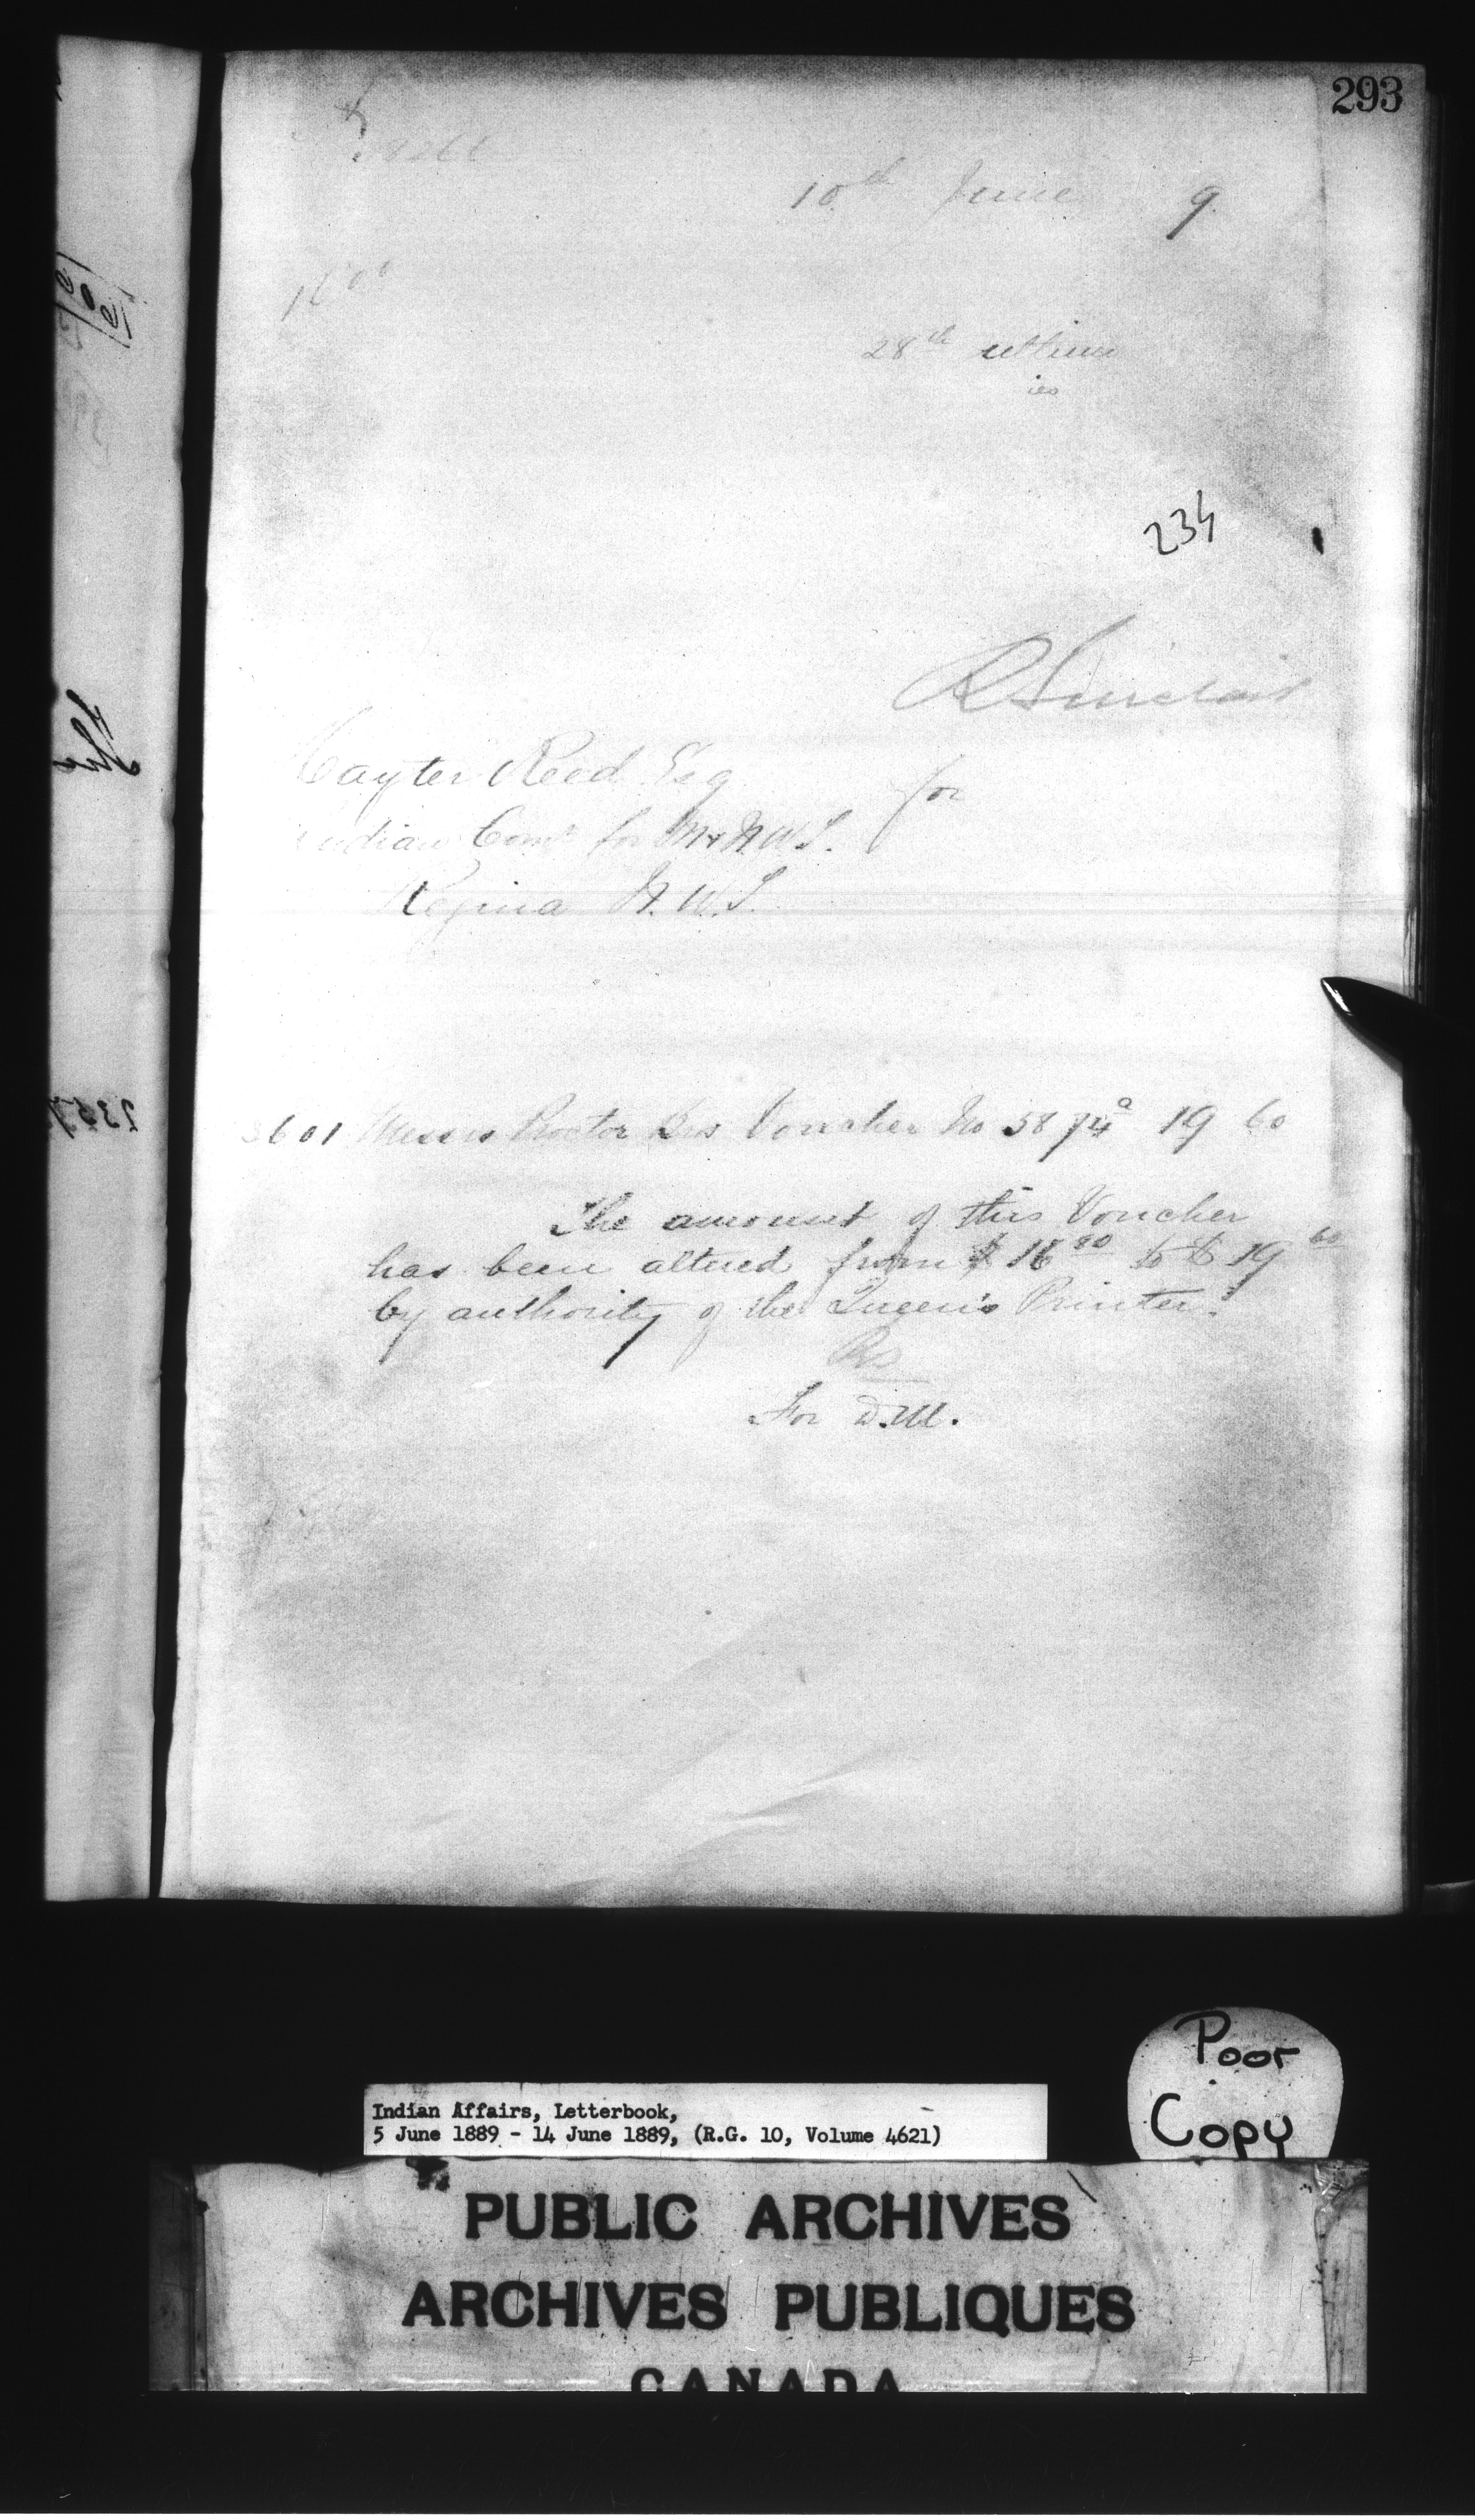 293
10th June 9.
28th ultimo
ies
234
R Sinclair
Hayter Reed Esq
for
Indian Comr for M & N.W.T.
Regina N.W.T.
3601 Messrs Proctor Bros Voucher No 5874a 19 60
The amount of this Voucher
has been altered from $16 80 to $19 60
by authority of the Queen's Printer.
RS
For D.M.
Poor
Copy
Indian Affairs, Letterbook,
5 June 1889 - 14 June 1889, (R.G. 10, Volume 4621)
PUBLIC ARCHIVES
ARCHIVES PUBLIQUES
CANADA